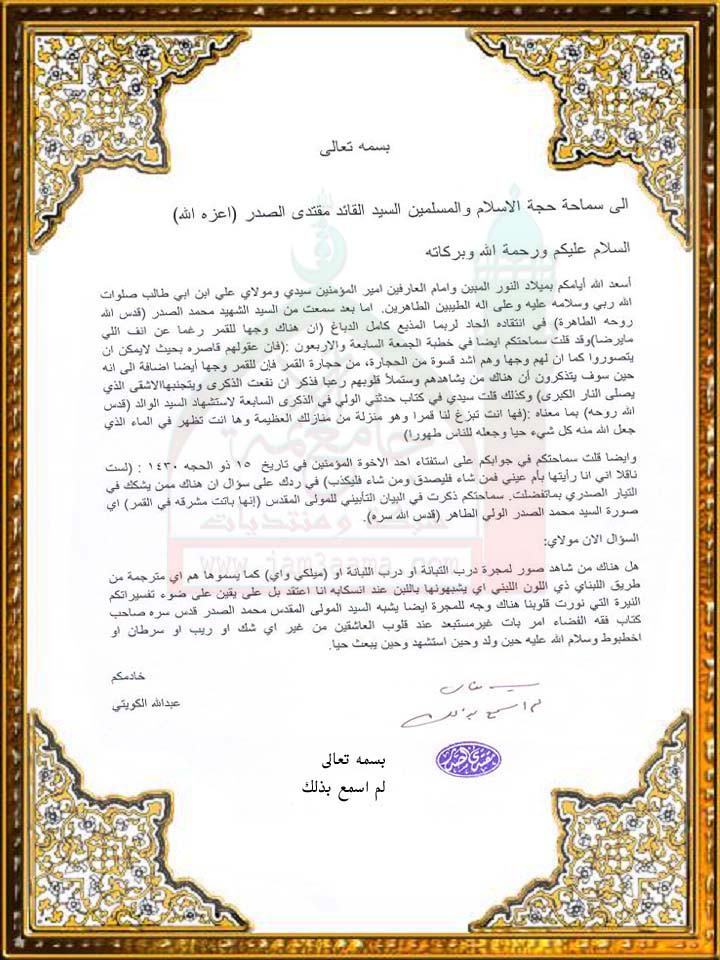 بسمه تعالى
الى سماحة حجة الاسلام والمسلمين السيد القائد مقتدى الصدر (اعزه الله)
السلام عليكم ورحمة الله وبركاته
أسعد الله أيامكم بميلاد النور المبين وامام العارفين امير المؤمنين سيدي ومولاي علي ابن ابي طالب صلوات
الله ربي وسلامه عليه وعلى اله الطيبين الطاهرين. اما بعد سمعت من السيد الشهيد محمد الصدر (قدس الله
روحه الطاهرة) في انتقاده الحاد لربما المذيع كامل الدباغ (ان هناك وجها للقمر رغما عن انف اللي
مايرضا)وقد قلت سماحتكم ايضا في خطبة الجمعة السابعة والاربعون :(فان عقولهم قاصره بحيث لايمكن ان
يتصوروا كما ان لهم وجها وهم اشد قسوة من الحجارة، من حجارة القمر فإن للقمر وجها أيضا اضافة الى انه
حين سوف يتذكرون أن هناك من يشاهدهم وستملأ قلوبهم رعبا فذكر ان نفعت الذكرى ويتجنبهاالاشقى الذي
يصلى النار الكبرى) وكذلك قلت سيدي في كتاب حدثني الولي في الذكرى السابعة لاستشهاد السيد الوالد (قدس
الله روحه) بما معناه :(فها انت تبزغ لنا قمرا وهو منزلة من منازلك العظيمة وها انت تظهر في الماء الذي
جعل الله منه كل شيء حيا وجعله للناس طهورا)
وايضا قلت سماحتكم في جوابكم على استفتاء احد الاخوة المؤمنين في تاريخ ١٥ ذو الحجه ١٤٣٠ : (لست
ناقلا اني انا رأيتها بأم عيني فمن شاء فليصدق ومن شاء فليكذب) في ردك على سؤال ان هناك ممن يشكك في
التيار الصدري بماتفضلت. سماحتكم ذكرت في البيان التأبيني للمولى المقدس (إنها باتت مشرقه في القمر) اي
صورة السيد محمد الصدر الولي الطاهر (قدس الله سره).
السؤال الان مولاي:
هل هناك من شاهد صور لمجرة درب التبانة او درب اللبانة او (ميلكي واي) كما يسموها هم اي مترجمة من
طريق اللبناي ذي اللون اللبني اي يشبهونها باللبن عند انسكابه انا اعتقد بل على يقين على ضوء تفسيراتكم
النيرة التي نورت قلوبنا هناك وجه للمجرة ايضا يشبه السيد المولى المقدس محمد الصدر قدس سره صاحب
كتاب فقه الفضاء امر بات غيرمستبعد عند قلوب العاشقين من غير اي شك او ريب او سرطان او
اخطبوط وسلام الله عليه حين ولد وحين استشهد وحين يبعث حيا.
خادمكم
عبدالله الكويتي
بسمه تعالى
لم اسمع بذلك
مقتدى الصدر
بسمه تعالى
لم اسمع بذلك
www.jam3aama.com
شبكة ومنتديات